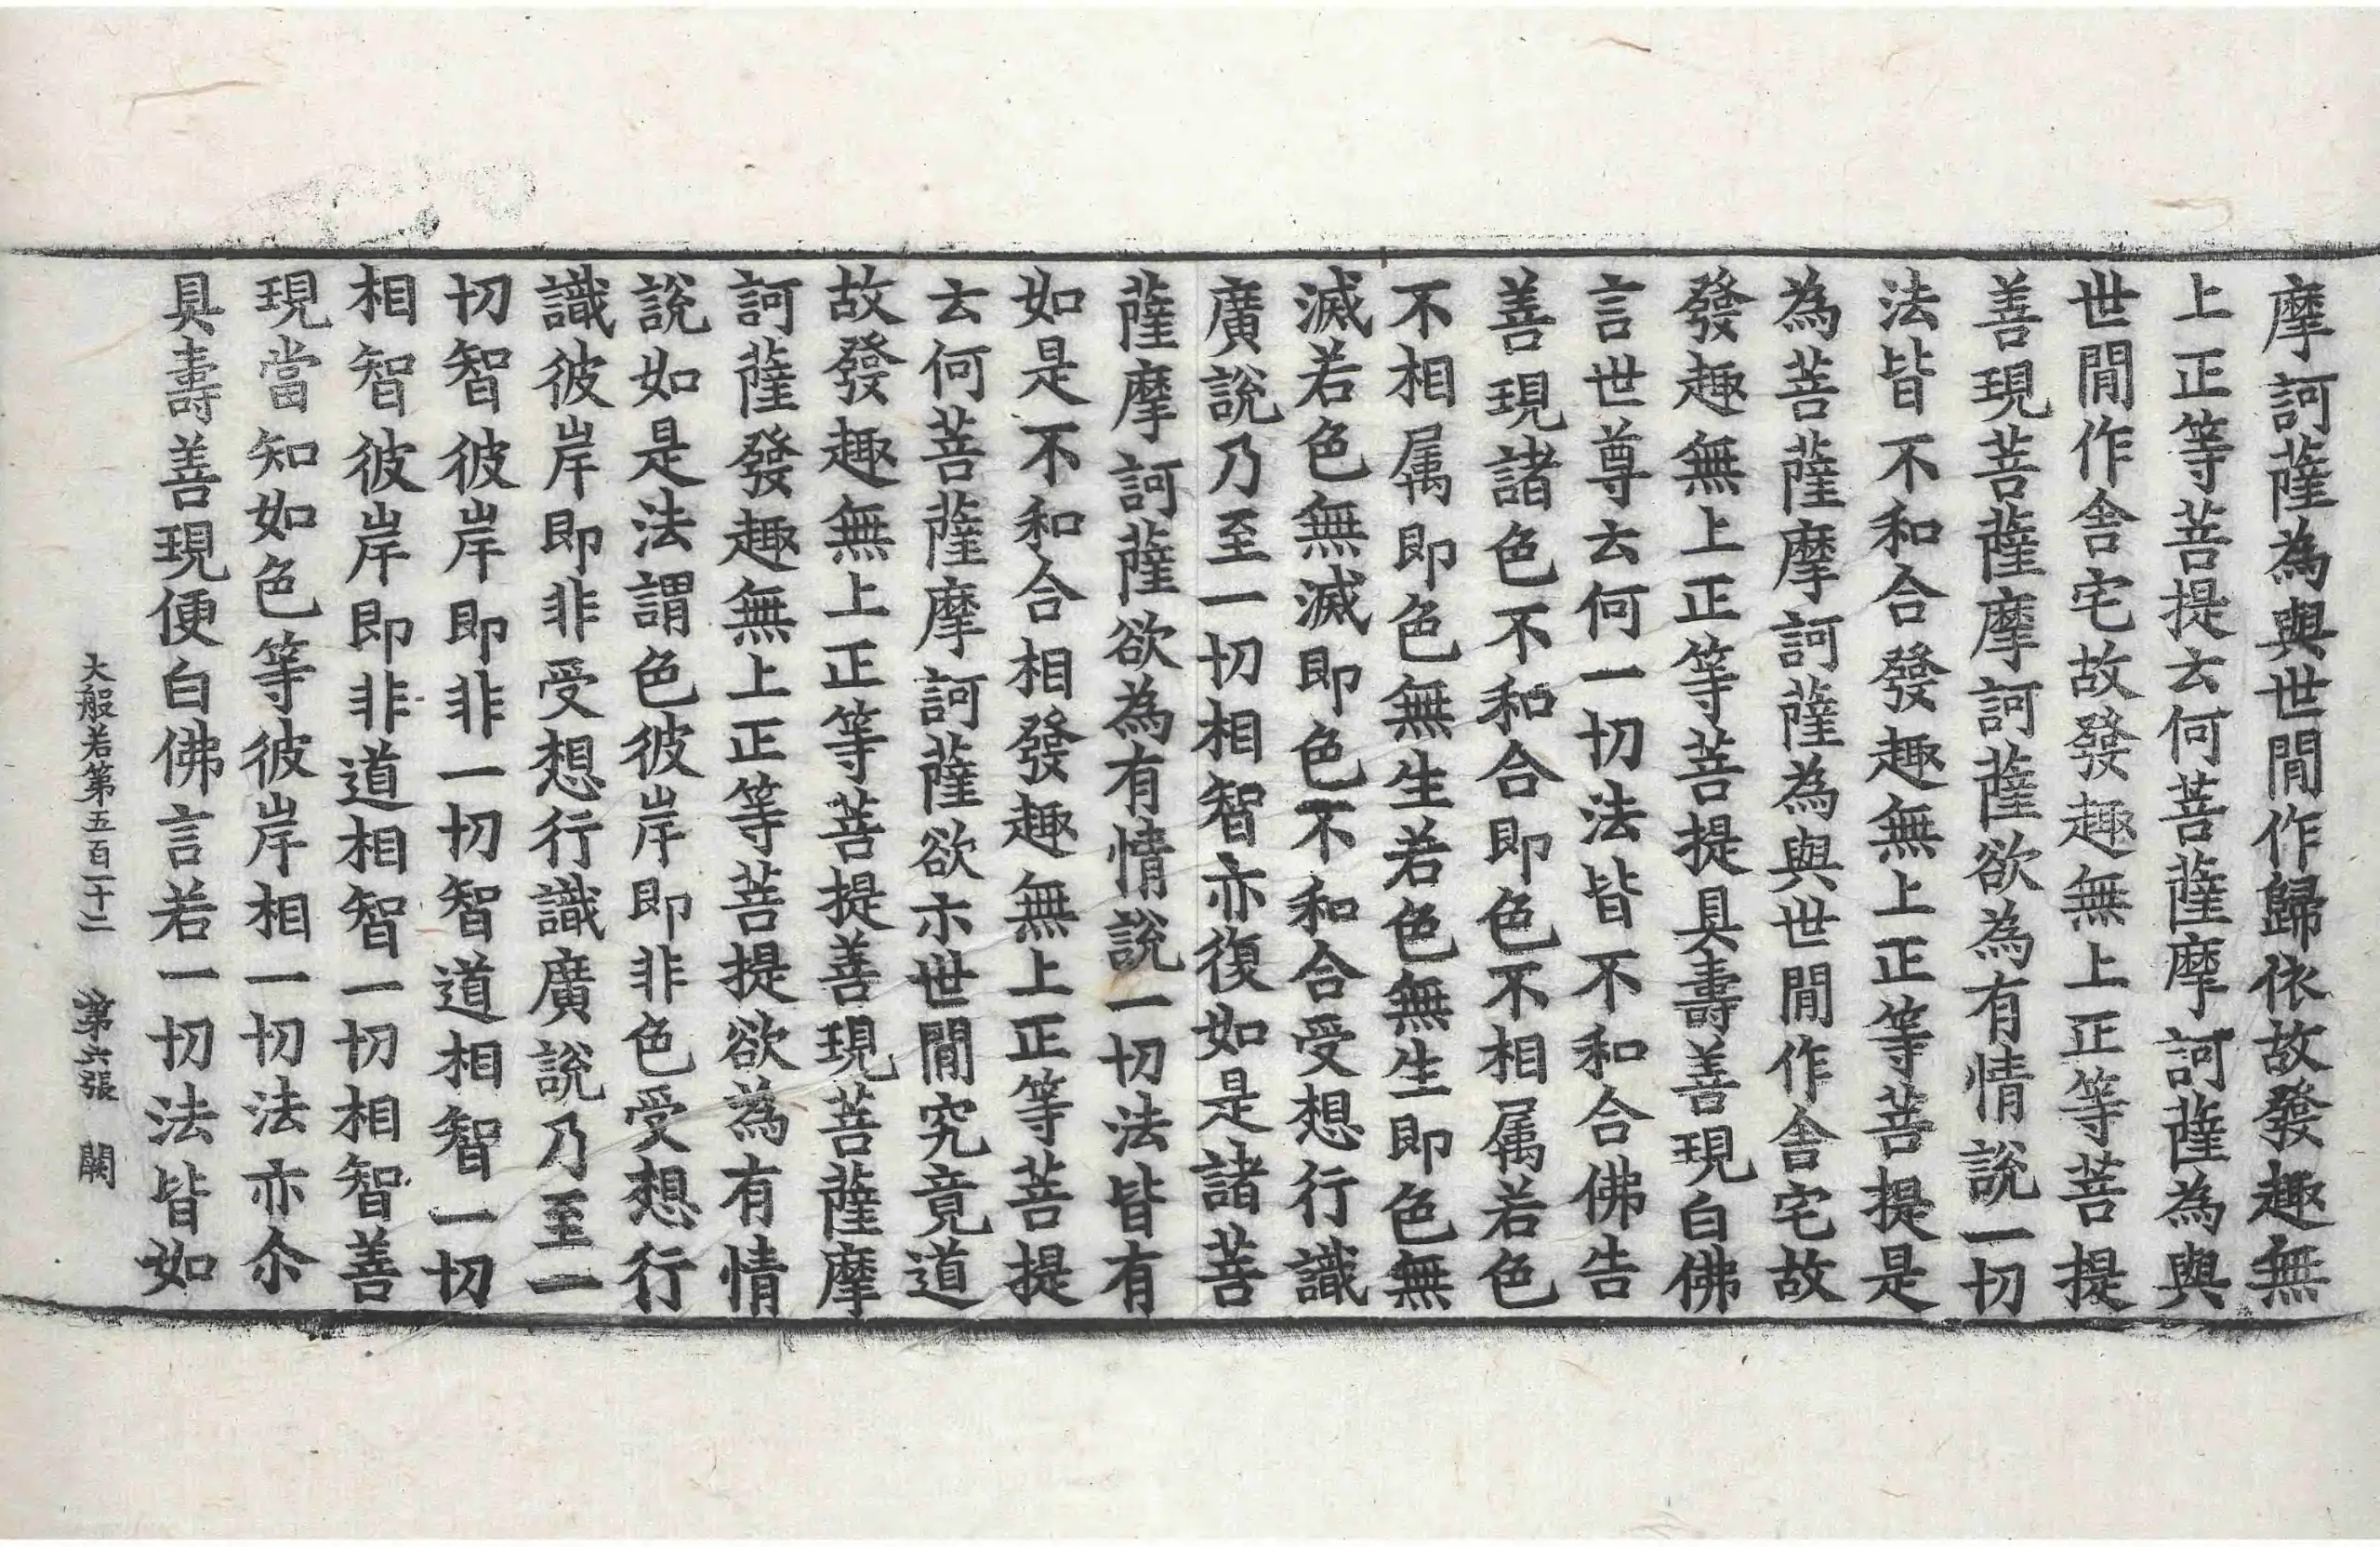 摩訶薩為與世閒作歸依故發趣無
上正等菩提云何菩薩摩訶薩為與
世閒作舍宅故發趣無上正等菩提
善現菩薩摩訶薩欲為有情說一切
法皆不和合發趣無上正等菩提是
為菩薩摩訶薩為與世閒作舍宅故
發趣無上正等菩提具壽善現白佛
言世尊云何一切法皆不和合佛告
善現諸色不和合即色不相属若色
不相属即色無生若色無生即色無
滅若色無滅即色不和合受想行識
廣說乃至一切相智亦復如是諸菩
薩摩訶薩欲為有情說一切法皆有
如是不和合相發趣無上正等菩提
云何菩薩摩訶薩欲示世閒究竟道
故發趣無上正等菩提善現菩薩摩
訶薩發趣無上正等菩提欲為有情
說如是法謂色彼岸即非色受想行
識彼岸即非受想行識廣說乃至一
切智彼岸即非一切智道相智一切
相智彼岸即非道相智一切相智善
現當知如色等彼岸相一切法亦尒
具壽善現便白佛言若一切法皆如
大般若第五百二十二 第六張 闕